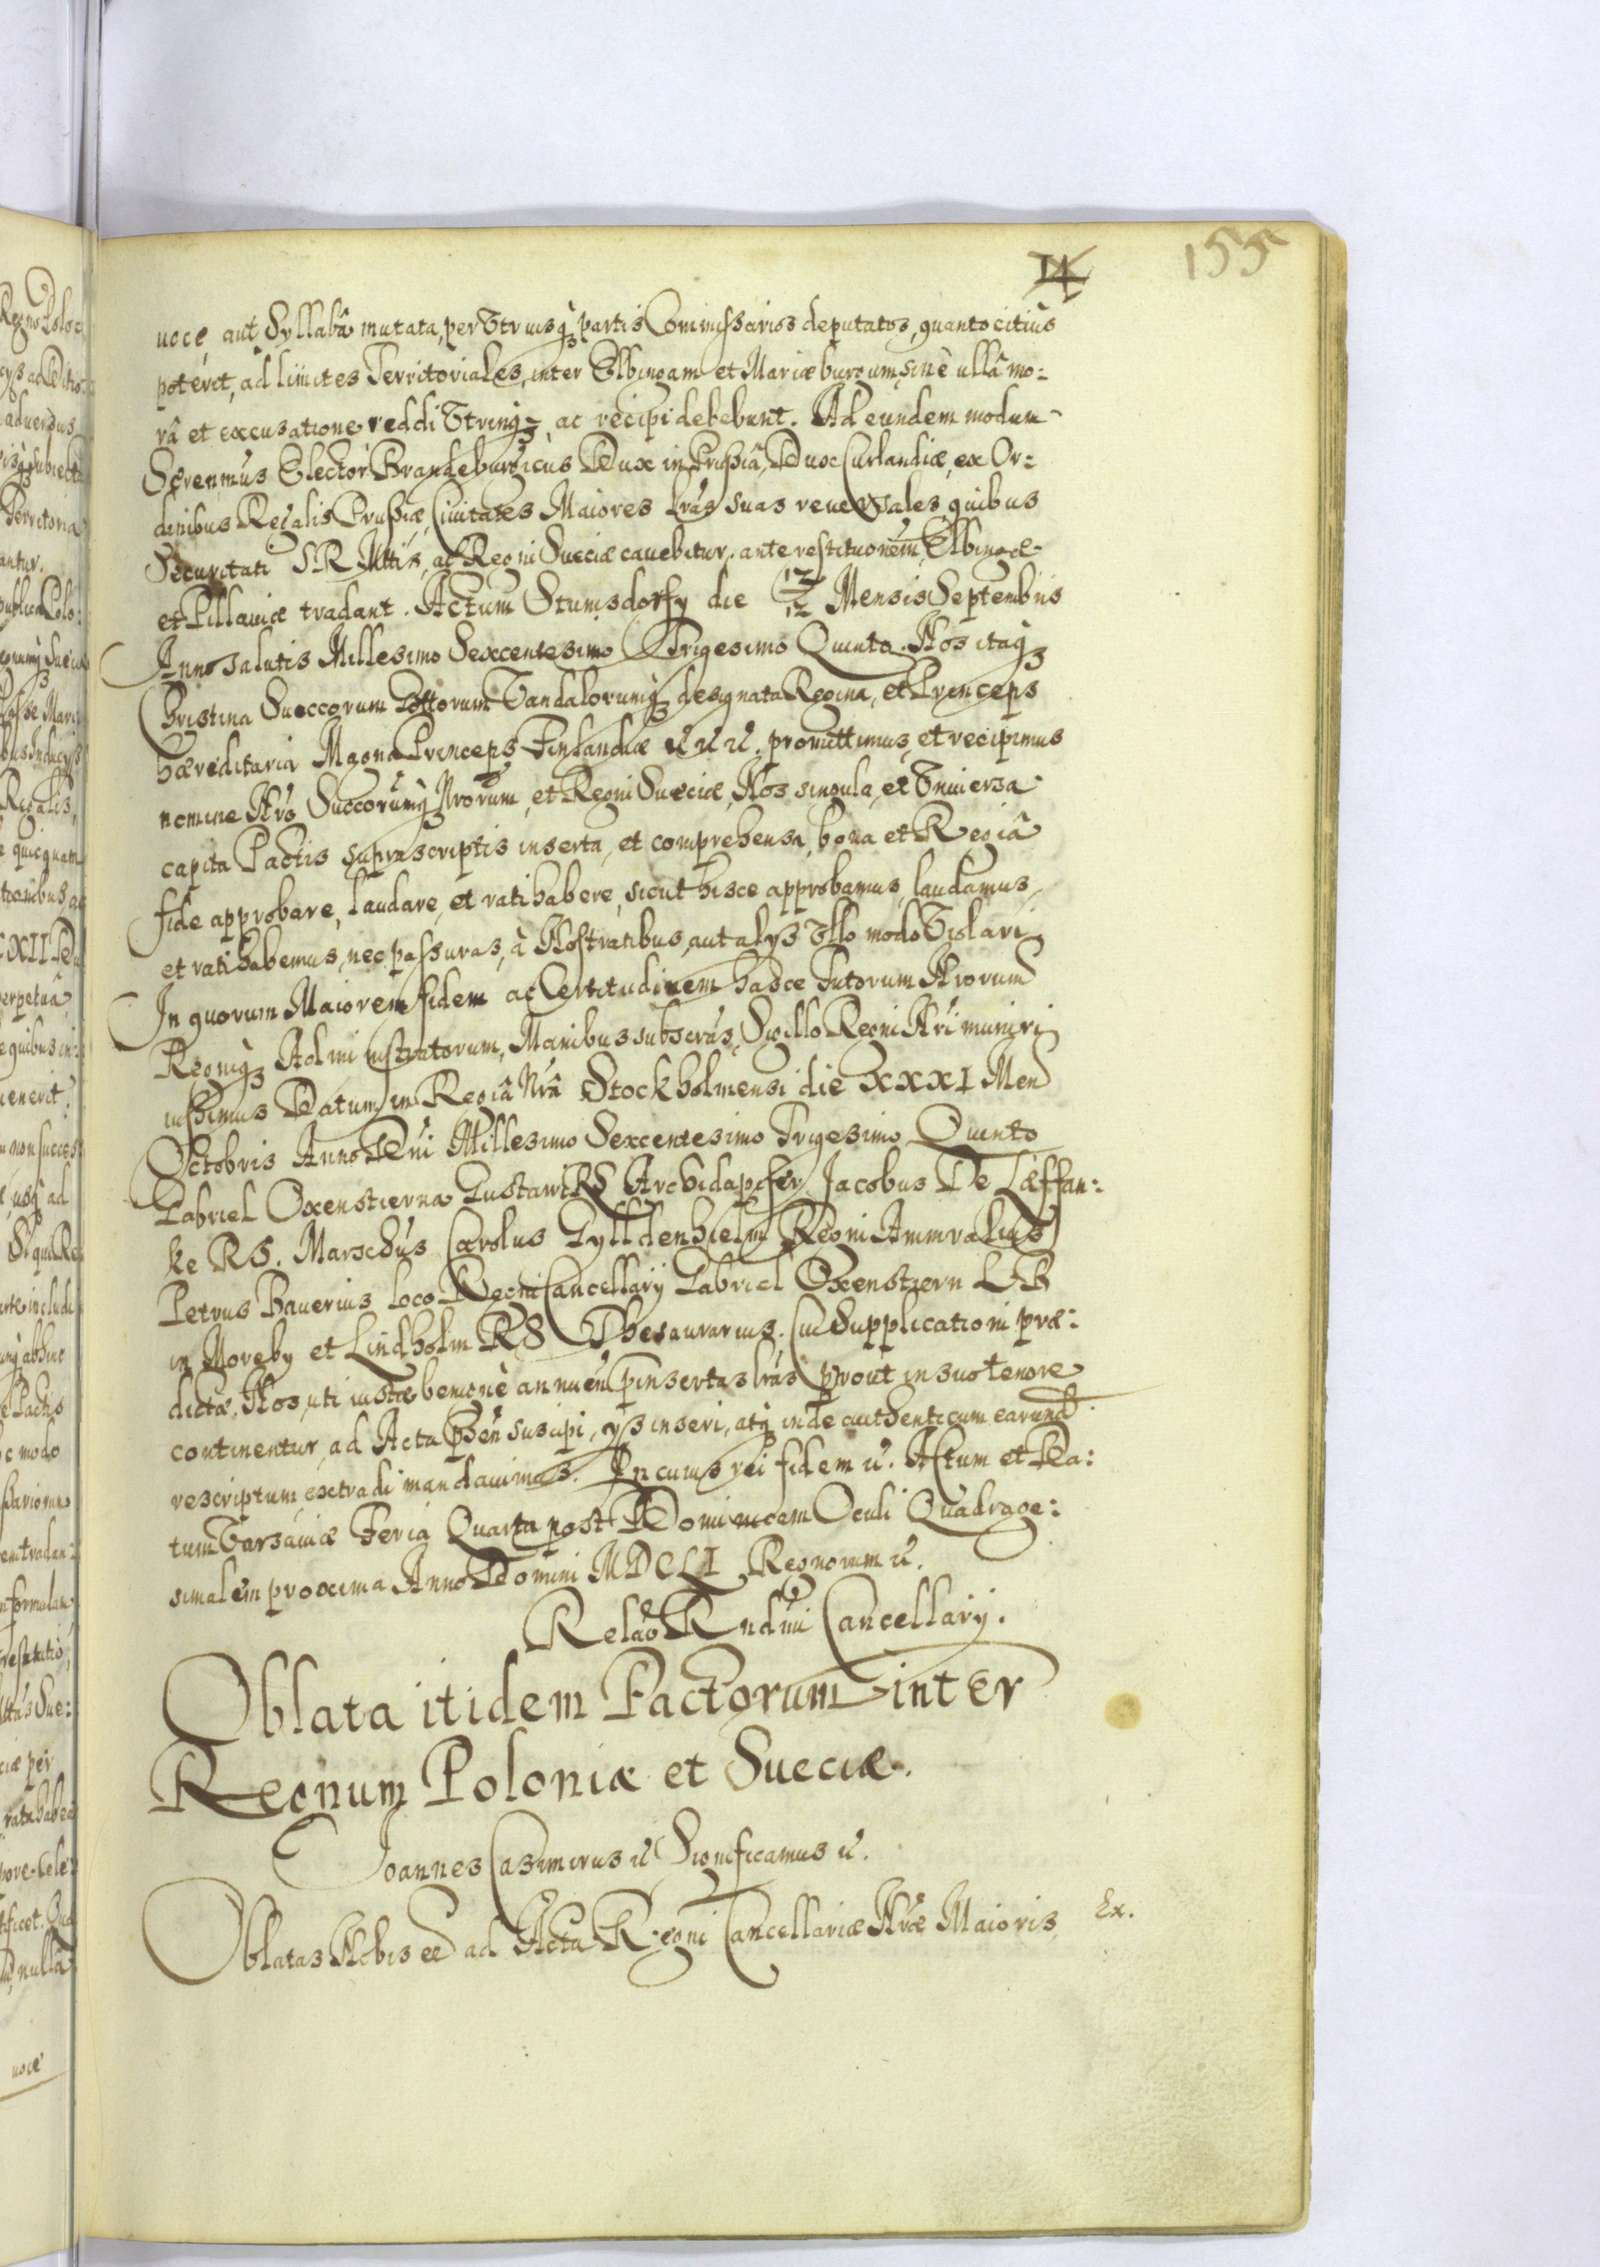 14
155
uoce, aut Syllabâ mutata, per Utriusq; partis Commissarios deputatos, quanto citiùs
poterit, ad limites Territoriales, inter Elbingam et Mariæburgum, sinè ullâ mo:
râ et excusatione reddi Utrinq;, ac recipi debebunt. Ad eundem modum
Serenmus Elector Brandeburgicus Dux in Prussiâ, Dux Curlandiæ, ex Or:
dinibus Regalis Prussiæ, Ciuitates Maiores lrás suas reuersales, quibus
Securitati S. R. Mttis, ac Regni Sueciæ cauebitur, ante restituonem, Elbingæ
et Pillauiæ tradant. Actum Stumsdorfy die 12/2 Mensis Septembris
Anno salutis Millesimo Sexcentesimo Trigesimo Quinto. Nos itaq;
Christina Sueccorum Gottorum Vandalorumq; designata Regina, et Princeps
hæreditaria Magna Princeps Finlandiæ etc etc etc. promittimus, et recipimus
nomine Nro Succorumq; Nrorum, et Regni Sueciæ, Nos singula, et Uniuersa
capita Pactis suprascriptis inserta, et comprehensa, bona et Regiâ
fide approbare, laudare, et ratihabere, sicut hisce approbamus, laudamus,
et ratihabemus, nec passuras, à Nostratibus, aut alys Ullo modo Violari
In quorum Maiorem fidem ac Certitudinem hasce Tutorum Nrorum
Regniq; Administratorum, Manibus subscrás, Sigillo Regni Nri muniri
iussimus Datum in Regiâ Nrâ Stockholmensi die XXXI Men
Octobris Anno Dni Millesimo Sexcentesimo Trigesimo Quinto
Gabriel Oxenstierna Gustawi RS Archidapifer Jacobus De Læffan:
ke RS. Marschus Carolus Gylldenhielm Regni Ammralius
Petrus Banerius loco Regni Cancellarÿ Gabriel Oxenstiern LB
in Moreby et Lindholm RS Thesaurarius. Cui Supplicationi præ:
dictæ, Nos, uti iustæ benignè annuen pinsertas lrás prout in suo tenore
continentur, ad Acta psen suscipi, ys inseri, atq; inde authenticum earund
rescriptum extradi mandauimus. In cuius rei fidem etc. Actum et Da:
tum Varsauiæ Feria Quarta post Dominicem Oculi Quadrage:
simalem proxima Anno Domini MDCLI Regnorum etc.
Relao Rndmi Cancellarÿ.
Oblata itidem Pactorum inter
Regnum Poloniæ et Sueciæ.
Joannes Casimirus etc Significamus etc.
Oblatas Nobis ee ad Acta Regni Cancellariæ Nræ Maioris, Ex.